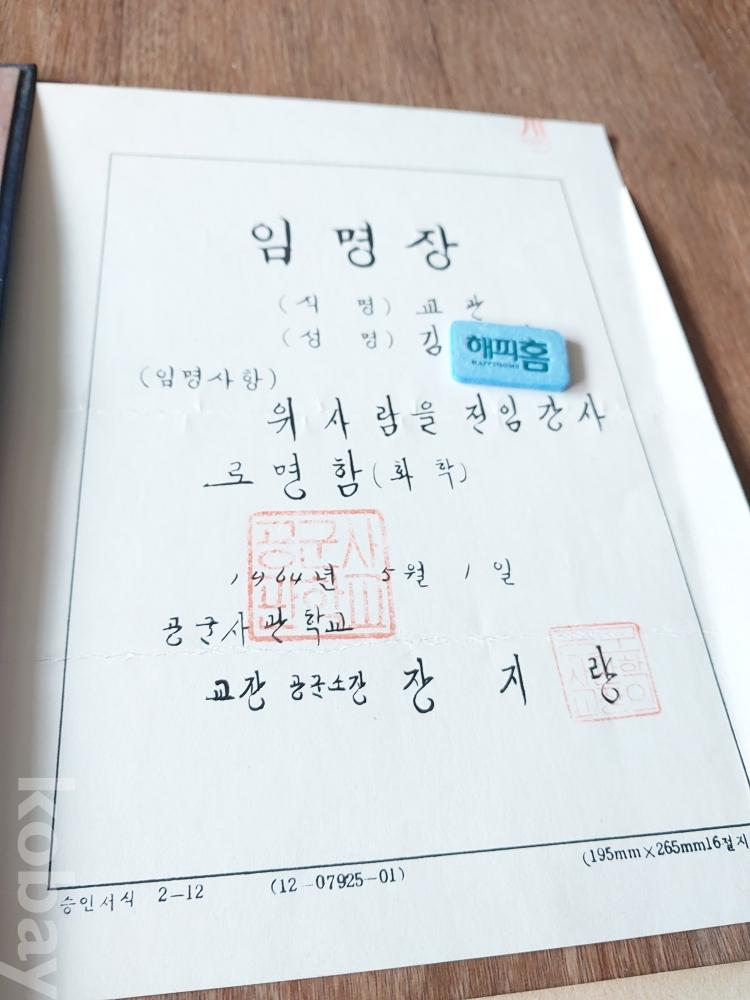 임 명 장
(직 명) 교 관
(성 명) 김
해피홈
HAPPYHOME
(임명사항)
위 사 람 을 전 임 강 사
로 명 함 (화 학)
1964년 5월 1일
공군사
관학교
공군사관학교
교장 공군소장 장 지 량
승인서식 2-12
(12-07925-01)
(195mm×265mm16절지
kobay